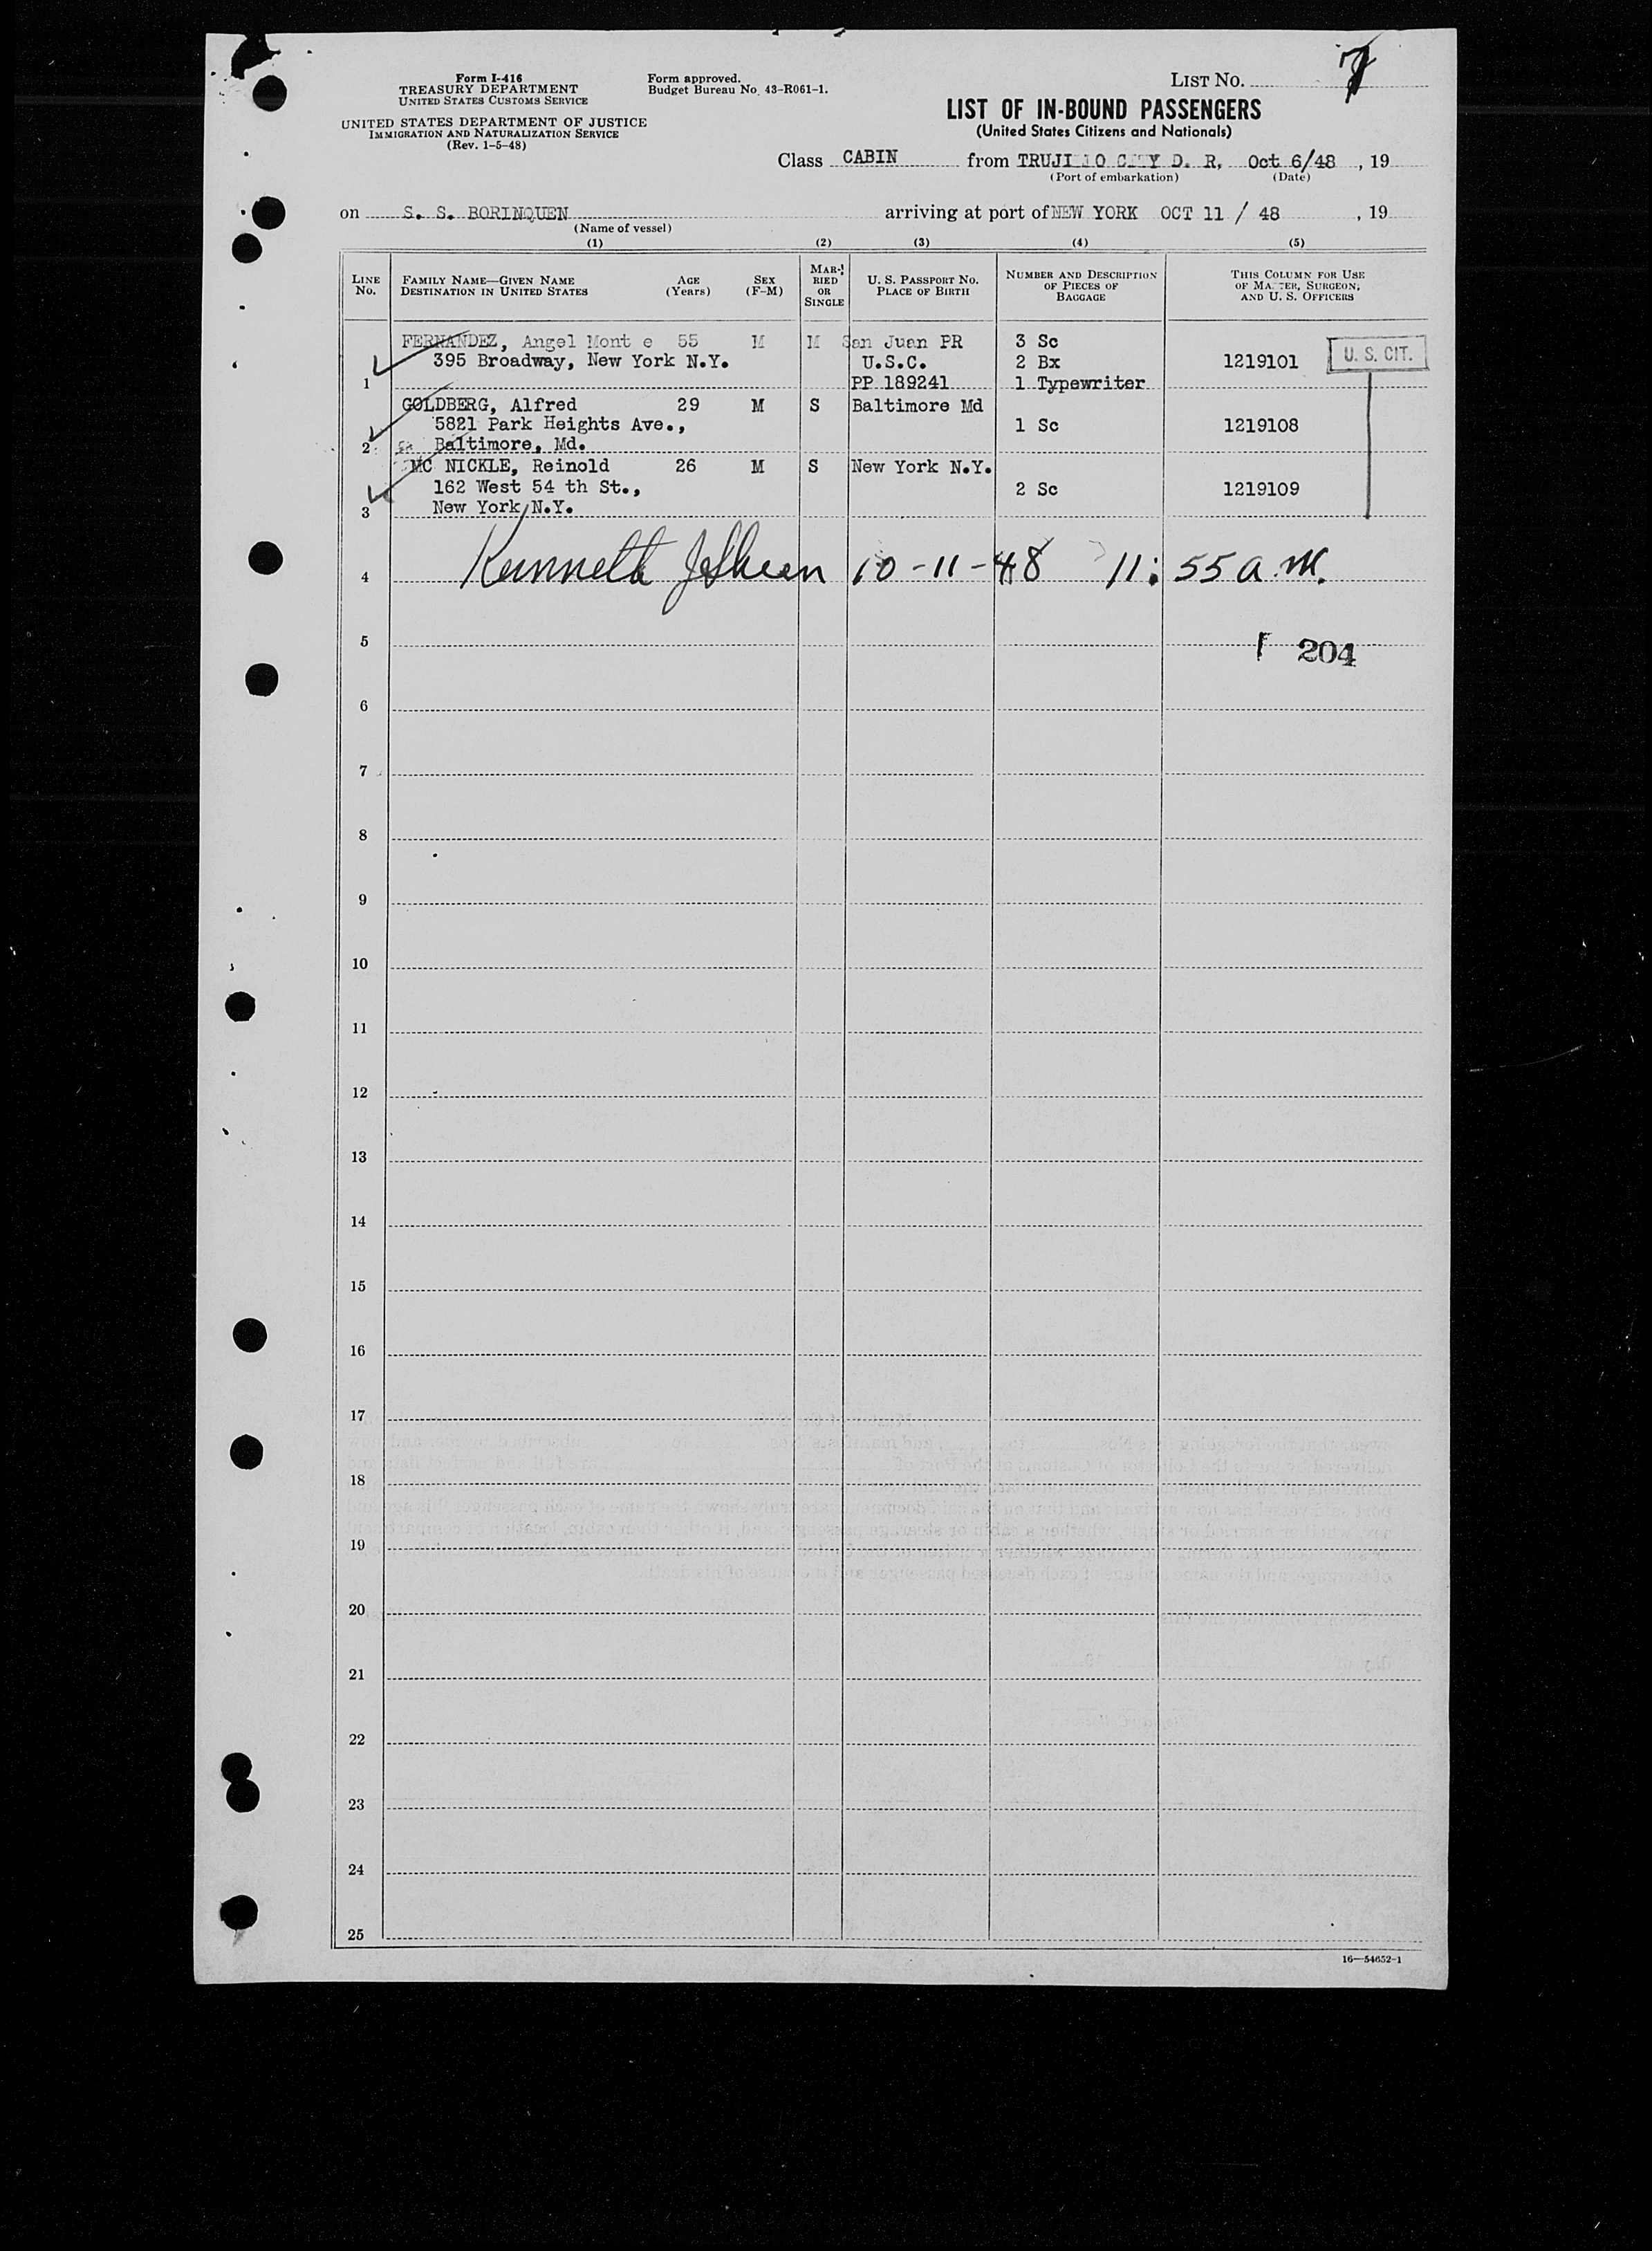 Form I-416
TREASURY DEPARTMENT
UNITED STATES CUSTOMS SERVICE
UNITED STATES DEPARTMENT OF JUSTICE
IMMIGRATION AND NATURALIZATION SERVICE
(Rev. 1-5-48)
Form approved.
Budget Bureau No. 43-R061-1.
LIST NO. 7
LIST OF IN-BOUND PASSENGERS
(United States Citizens and Nationals)
Class CABIN from TRUJILLO CITY D. R, Oct 6/48 , 19
(Port of embarkation) (Date)
on S. S. BORINQUEN arriving at port of NEW YORK OCT 11 / 48 , 19
(Name of vessel)
(1) (2) (3) (4) (5)
LINE NO. FAMILY NAME—GIVEN NAME DESTINATION IN UNITED STATES AGE (Years) SEX (F-M) MARRIED OR SINGLE U. S. PASSPORT NO. PLACE OF BIRTH NUMBER AND DESCRIPTION OF PIECES OF BAGGAGE THIS COLUMN FOR USE OF MASTER, SURGEON, AND U. S. OFFICERS
FERNANDEZ, Angel Mont e 55 M M San Juan PR 3 Sc
395 Broadway, New York N.Y. U.S.C. 2 Bx 1219101 U. S. CIT.
1 PP 189241 1 Typewriter
GOLDBERG, Alfred 29 M S Baltimore Md
5821 Park Heights Ave., 1 Sc 1219108
2 Baltimore, Md.
MC NICKLE, Reinold 26 M S New York N.Y.
162 West 54 th St., 2 Sc 1219109
3 New York N.Y.
4 Kenneth 10-11-48 11:55 a.m.
5 204
6
7
8
9
10
11
12
13
14
15
16
17
18
19
20
21
22
23
24
25
16—54652-1